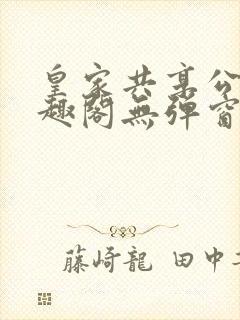 皇家共享公
趣閣無彈窗
藤崎龍 田中